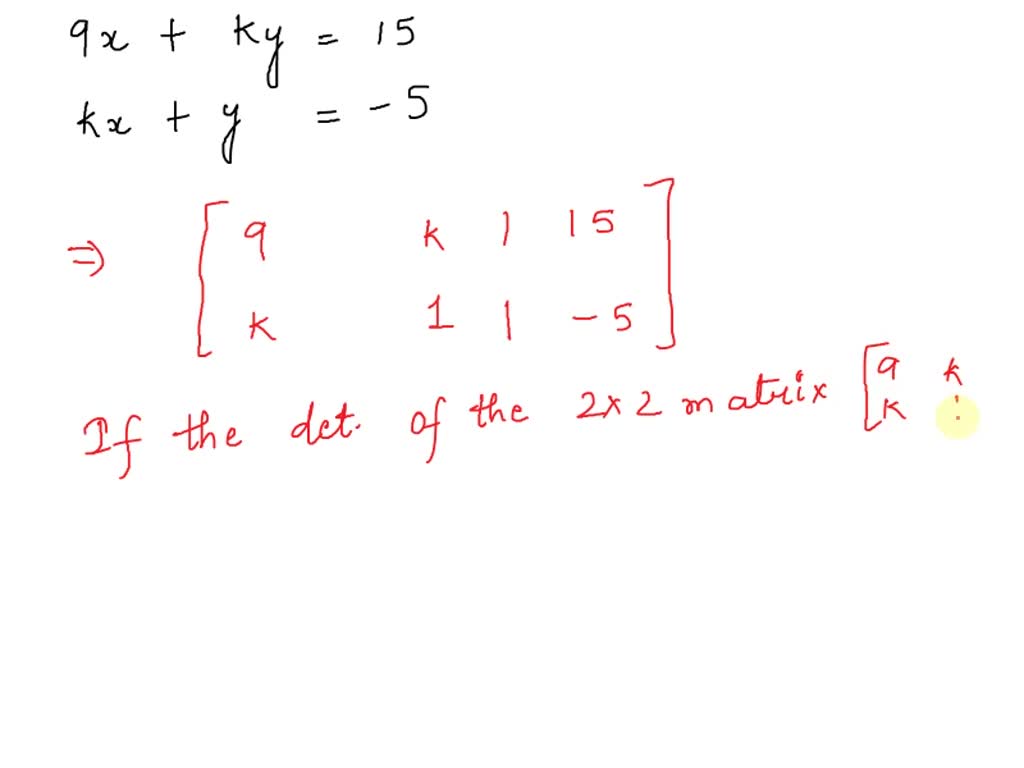 9x + ky = 15
kx + y = -5
⇒ [ 9 k | 15
k 1 | -5 ]
If the det. of the 2x2 matrix [ 9 k
k